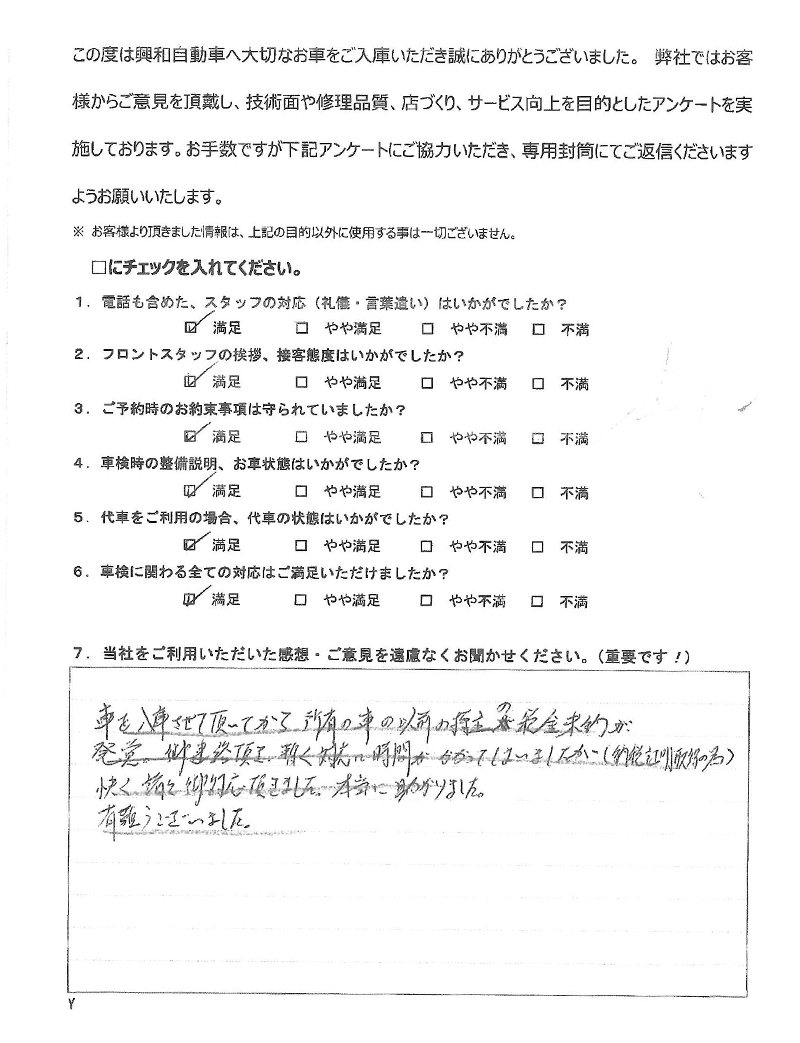 この度は興和自動車へ大切なお車をご入庫いただき誠にありがとうございました。 弊社ではお客
様からご意見を頂戴し、技術面や修理品質、店づくり、サービス向上を目的としたアンケートを実
施しております。お手数ですが下記アンケートにご協力いただき、専用封筒にてご返信くださいます
ようお願いいたします。
※ お客様より頂きました情報は、上記の目的以外に使用する事は一切ございません。
□にチェックを入れてください。
1．電話も含めた、スタッフの対応（礼儀・言葉遣い）はいかがでしたか？
☑ 満足 □ やや満足 □ やや不満 □ 不満
2．フロントスタッフの挨拶、接客態度はいかがでしたか？
☑ 満足 □ やや満足 □ やや不満 □ 不満
3．ご予約時のお約束事項は守られていましたか？
☑ 満足 □ やや満足 □ やや不満 □ 不満
4．車検時の整備説明、お車状態はいかがでしたか？
☑ 満足 □ やや満足 □ やや不満 □ 不満
5．代車をご利用の場合、代車の状態はいかがでしたか？
☑ 満足 □ やや満足 □ やや不満 □ 不満
6．車検に関わる全ての対応はご満足いただけましたか？
☑ 満足 □ やや満足 □ やや不満 □ 不満
7．当社をご利用いただいた感想・ご意見を遠慮なくお聞かせください。（重要です！）
車を入庫させて頂いてから 所有の車の以前の持主の税金未納が
発覚。御連絡頂き、暫く対応に時間がかかってしまいましたが（納税証明取得の為）
快く 御対応頂きました。本当に助かりました。
有難うございました。
Y